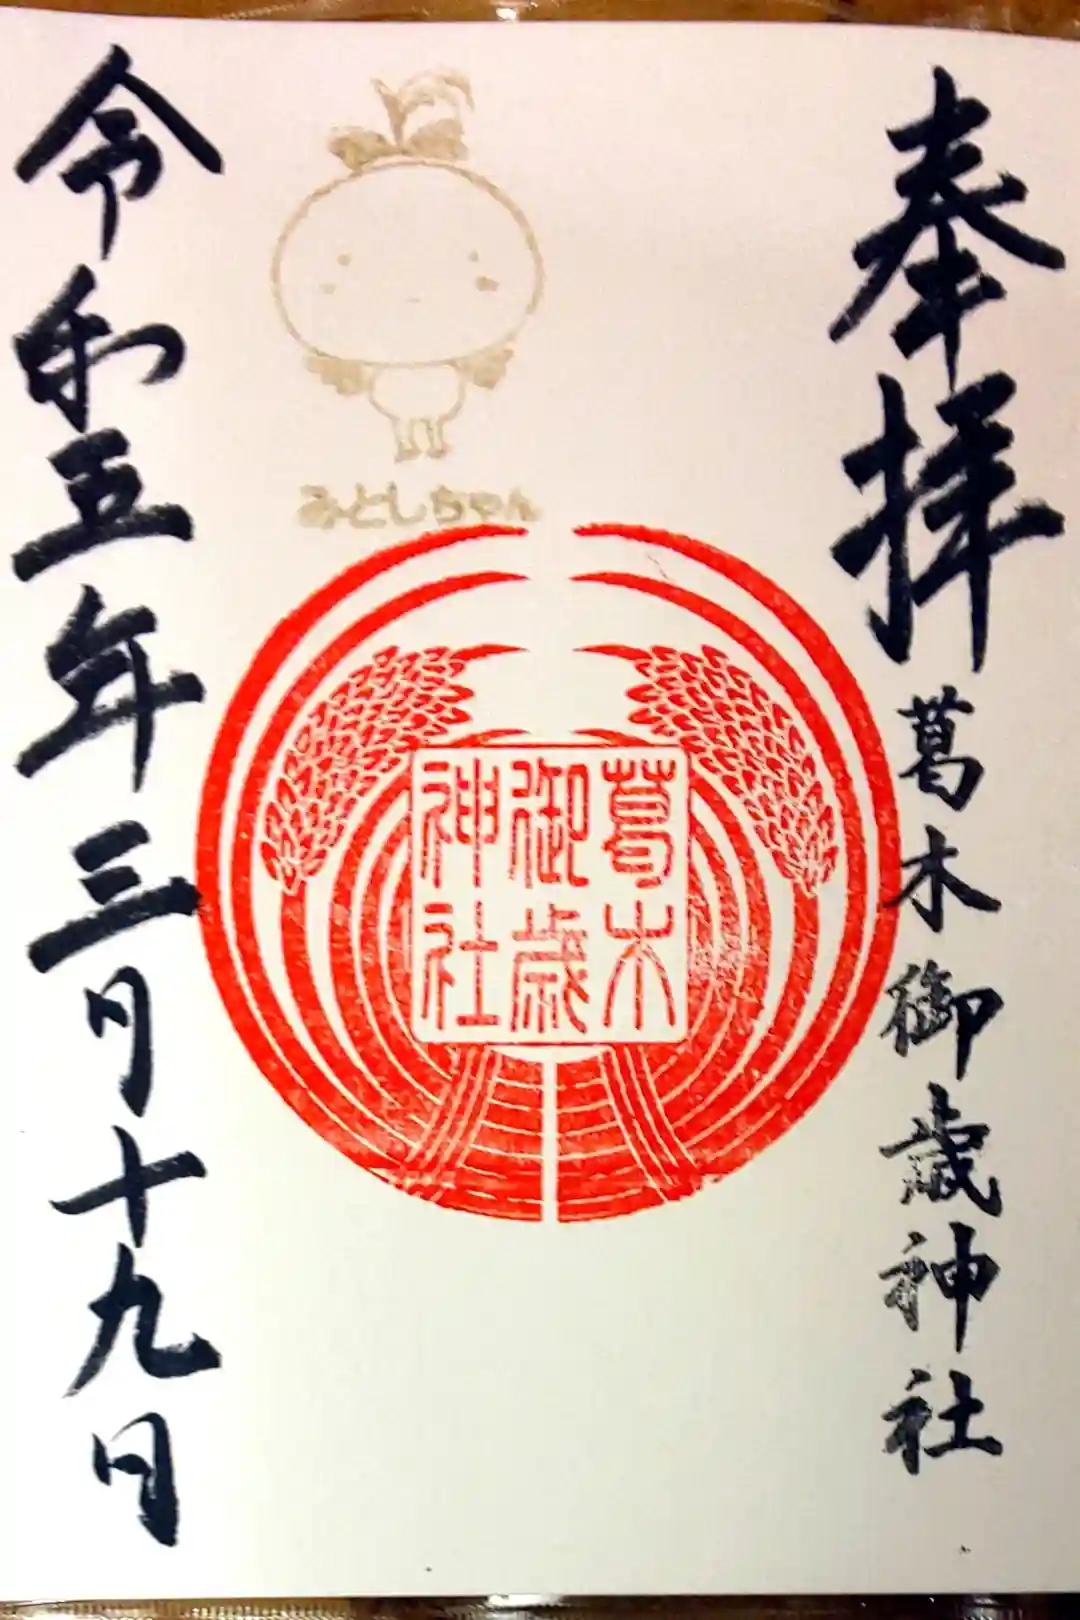 奉拝
葛木御歳神社
みとしちゃん
葛木
御歳
神社
令和五年三月十九日